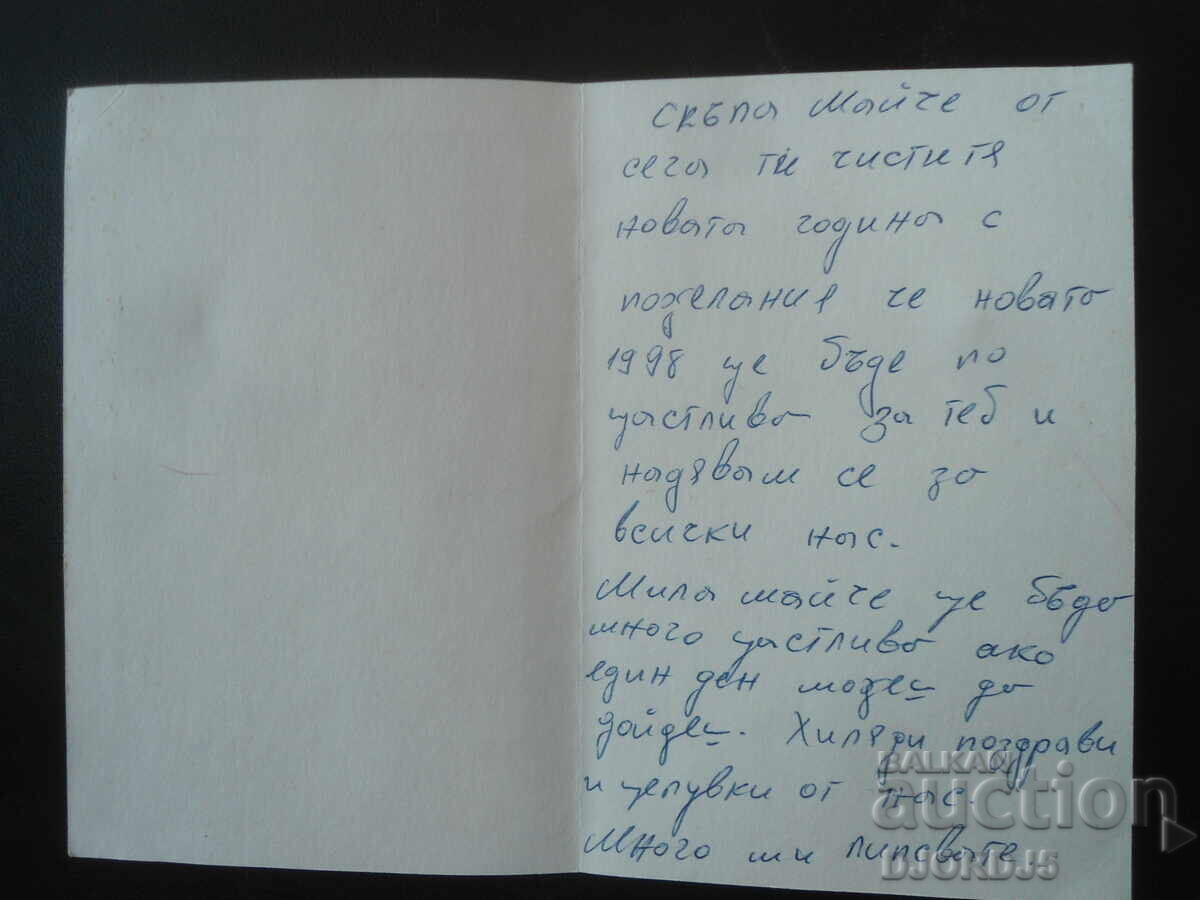 Скъпа Майче от
сега ти чиститя
новата година с
пожелания че новата
1998 ще бъде по
щастлива за теб и
надявам се за
всички нас.
Мила майче ще бъда
много щастлива ако
един ден можеш да
дойдеш. Хиляди поздрави
и целувки от нас.
Много ми липсвате
BALKAN
auction
DJORDJ5